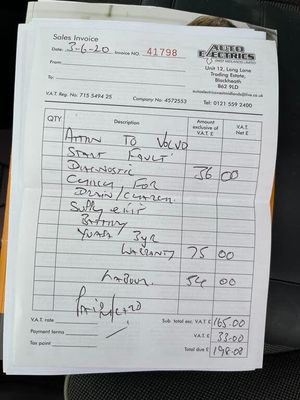 Sales Invoice
Date: 3-6-20 Invoice NO. 41798
AUTO
ELECTRICS
WEST MIDLANDS LIMITED
From:
Unit 12, Long Lane
Trading Estate,
Blackheath
B62 9LD
autoelectricswestmidlands@live.co.uk
To:
V.A.T. Reg. No: 715 5494 25 Company No: 4572553 Tel: 0121 559 2400
QTY Description Amount exclusive of V.A.T. £ V.A.T. Net £
ATTN TO VOLVO
START FAULT
DIAGNOSTIC 36 00
CHECK FOR
DRAIN/CHARGE
Supply & FIT
BATTERY
YUASA 3yr
WARRANTY 75 00
LABOUR. 54 00
V.A.T. rate Sub total exc. V.A.T £ 165.00
Payment terms V.A.T. £ 33.00
Tax point Total due £ 198.00